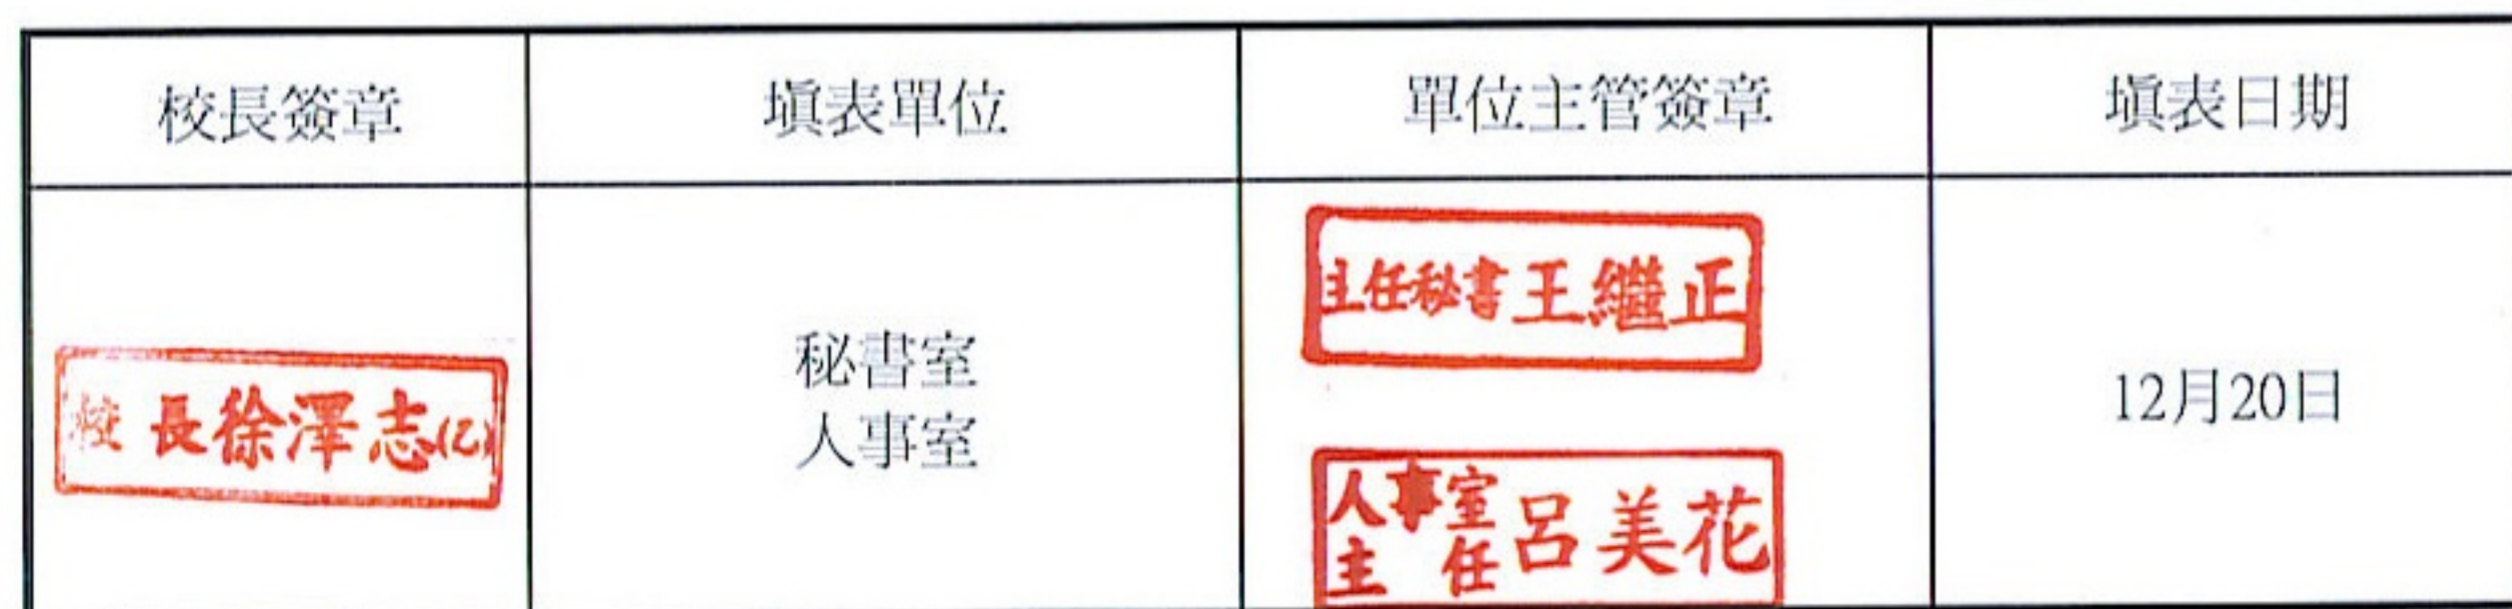 校長簽章 填表單位 單位主管簽章 填表日期
校長徐澤志(乙)
秘書室
人事室
主任秘書王繼正
人事室主任呂美花
12月20日